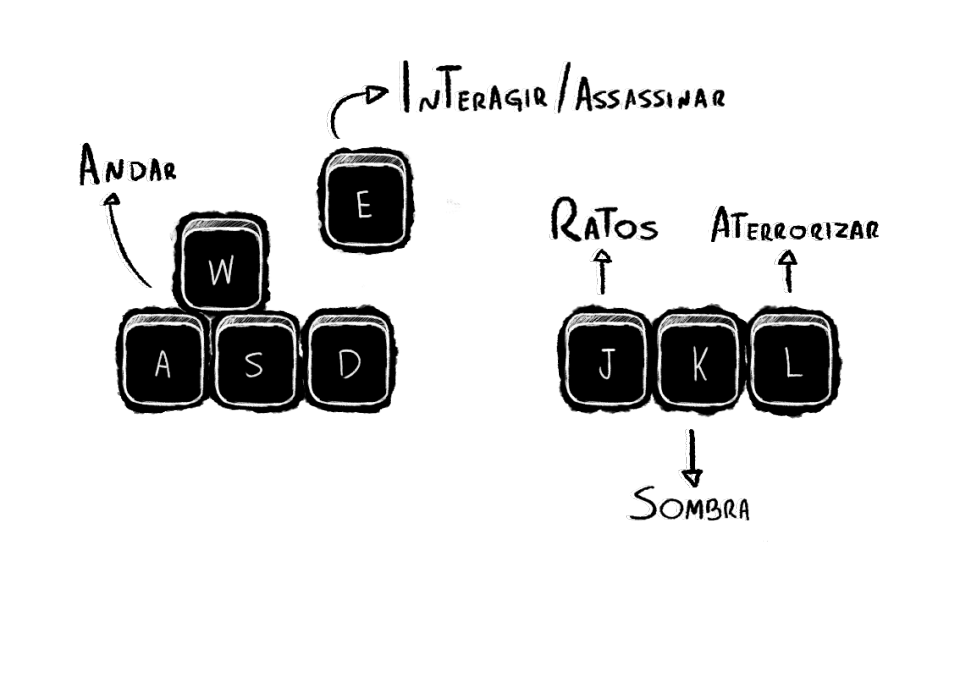 Interagir/Assassinar
Andar
E
W
Ratos
Aterrorizar
A S D
J K L
Sombra